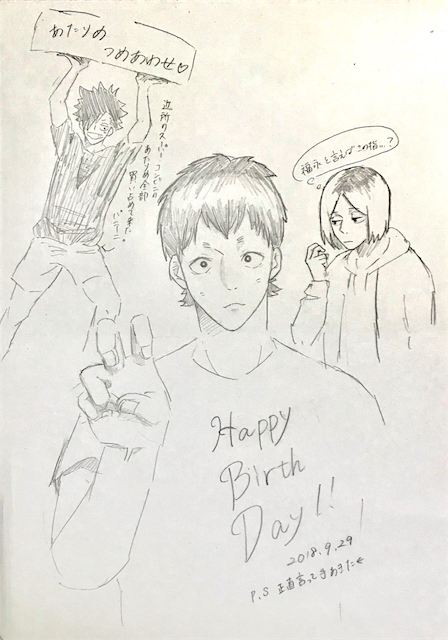 あたりめ
つめあわせ♡
近所のスーパー、コンビニの
あたりめ全部
買い占めて来た。
福永と言えばこの指…?
Happy
Birth
Day!!
2018.9.29
P.S 正直言って手あきた